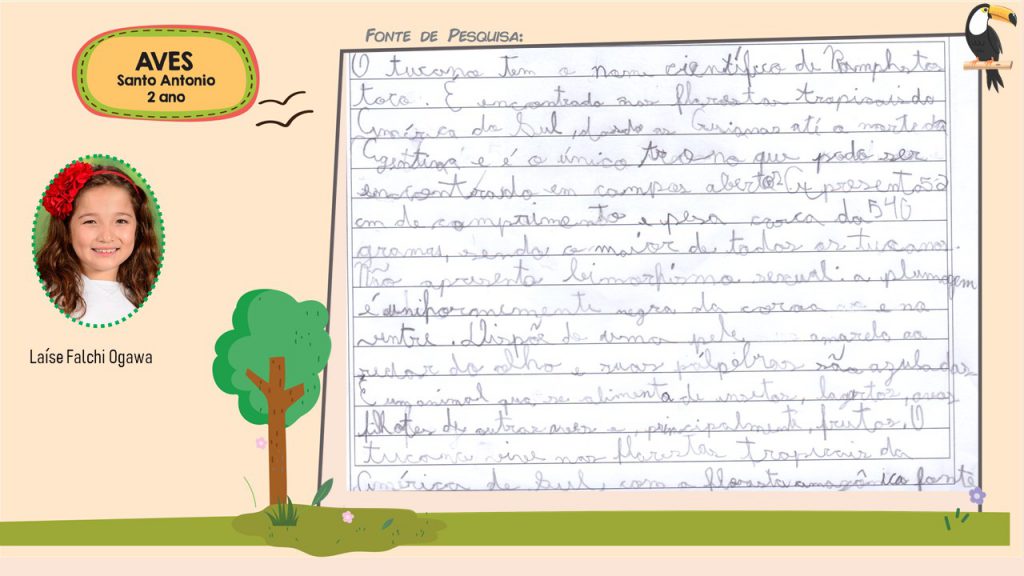 AVES
Santo Antonio
2 ano
Laíse Falchi Ogawa
FONTE DE PESQUISA:
O tucano tem o nome científico de Ramphastos
toco. É encontrado nas florestas tropicais do
América do Sul, desde as Guianas até o norte da
e é o único tucano que pode ser
encontrado em campos abertos. Apresenta 56
cm de comprimento e pesa cerca de 540
gramas, sendo o maior de todos os tucanos.
Não apresenta bimorfismo sexual: a plumagem
é negra da coroa e no
ventre. Dispõe de uma pele amarelo ao
redor do olho e suas pálpebras são azuladas
É um animal que se alimenta de insetos, lagartos, ovos
filhotes de outras aves e, principalmente, frutas. O
tucano vive nas florestas tropicais da
América do Sul, com a floresta amazônica fonte